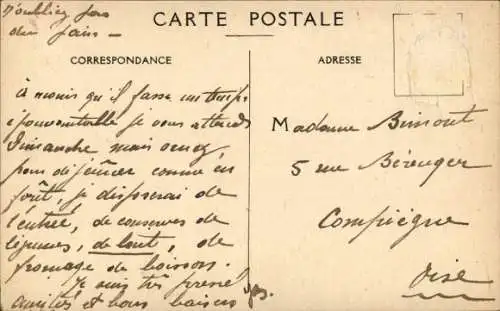 N'oubliez pas
du pain —
CARTE POSTALE
CORRESPONDANCE
ADRESSE
à moins qu'il fasse un temps
épouvantable je vous attends
Dimanche mais venez
pour déjeuner comme en
forêt. je disposerai de
l'entrée, de conserves de
légumes, de lait, de
fromage de boisson.
Je suis très pressé
amitiés et bons baisers
Madame Bimont
5 rue Bérenger
Compiègne
Oise